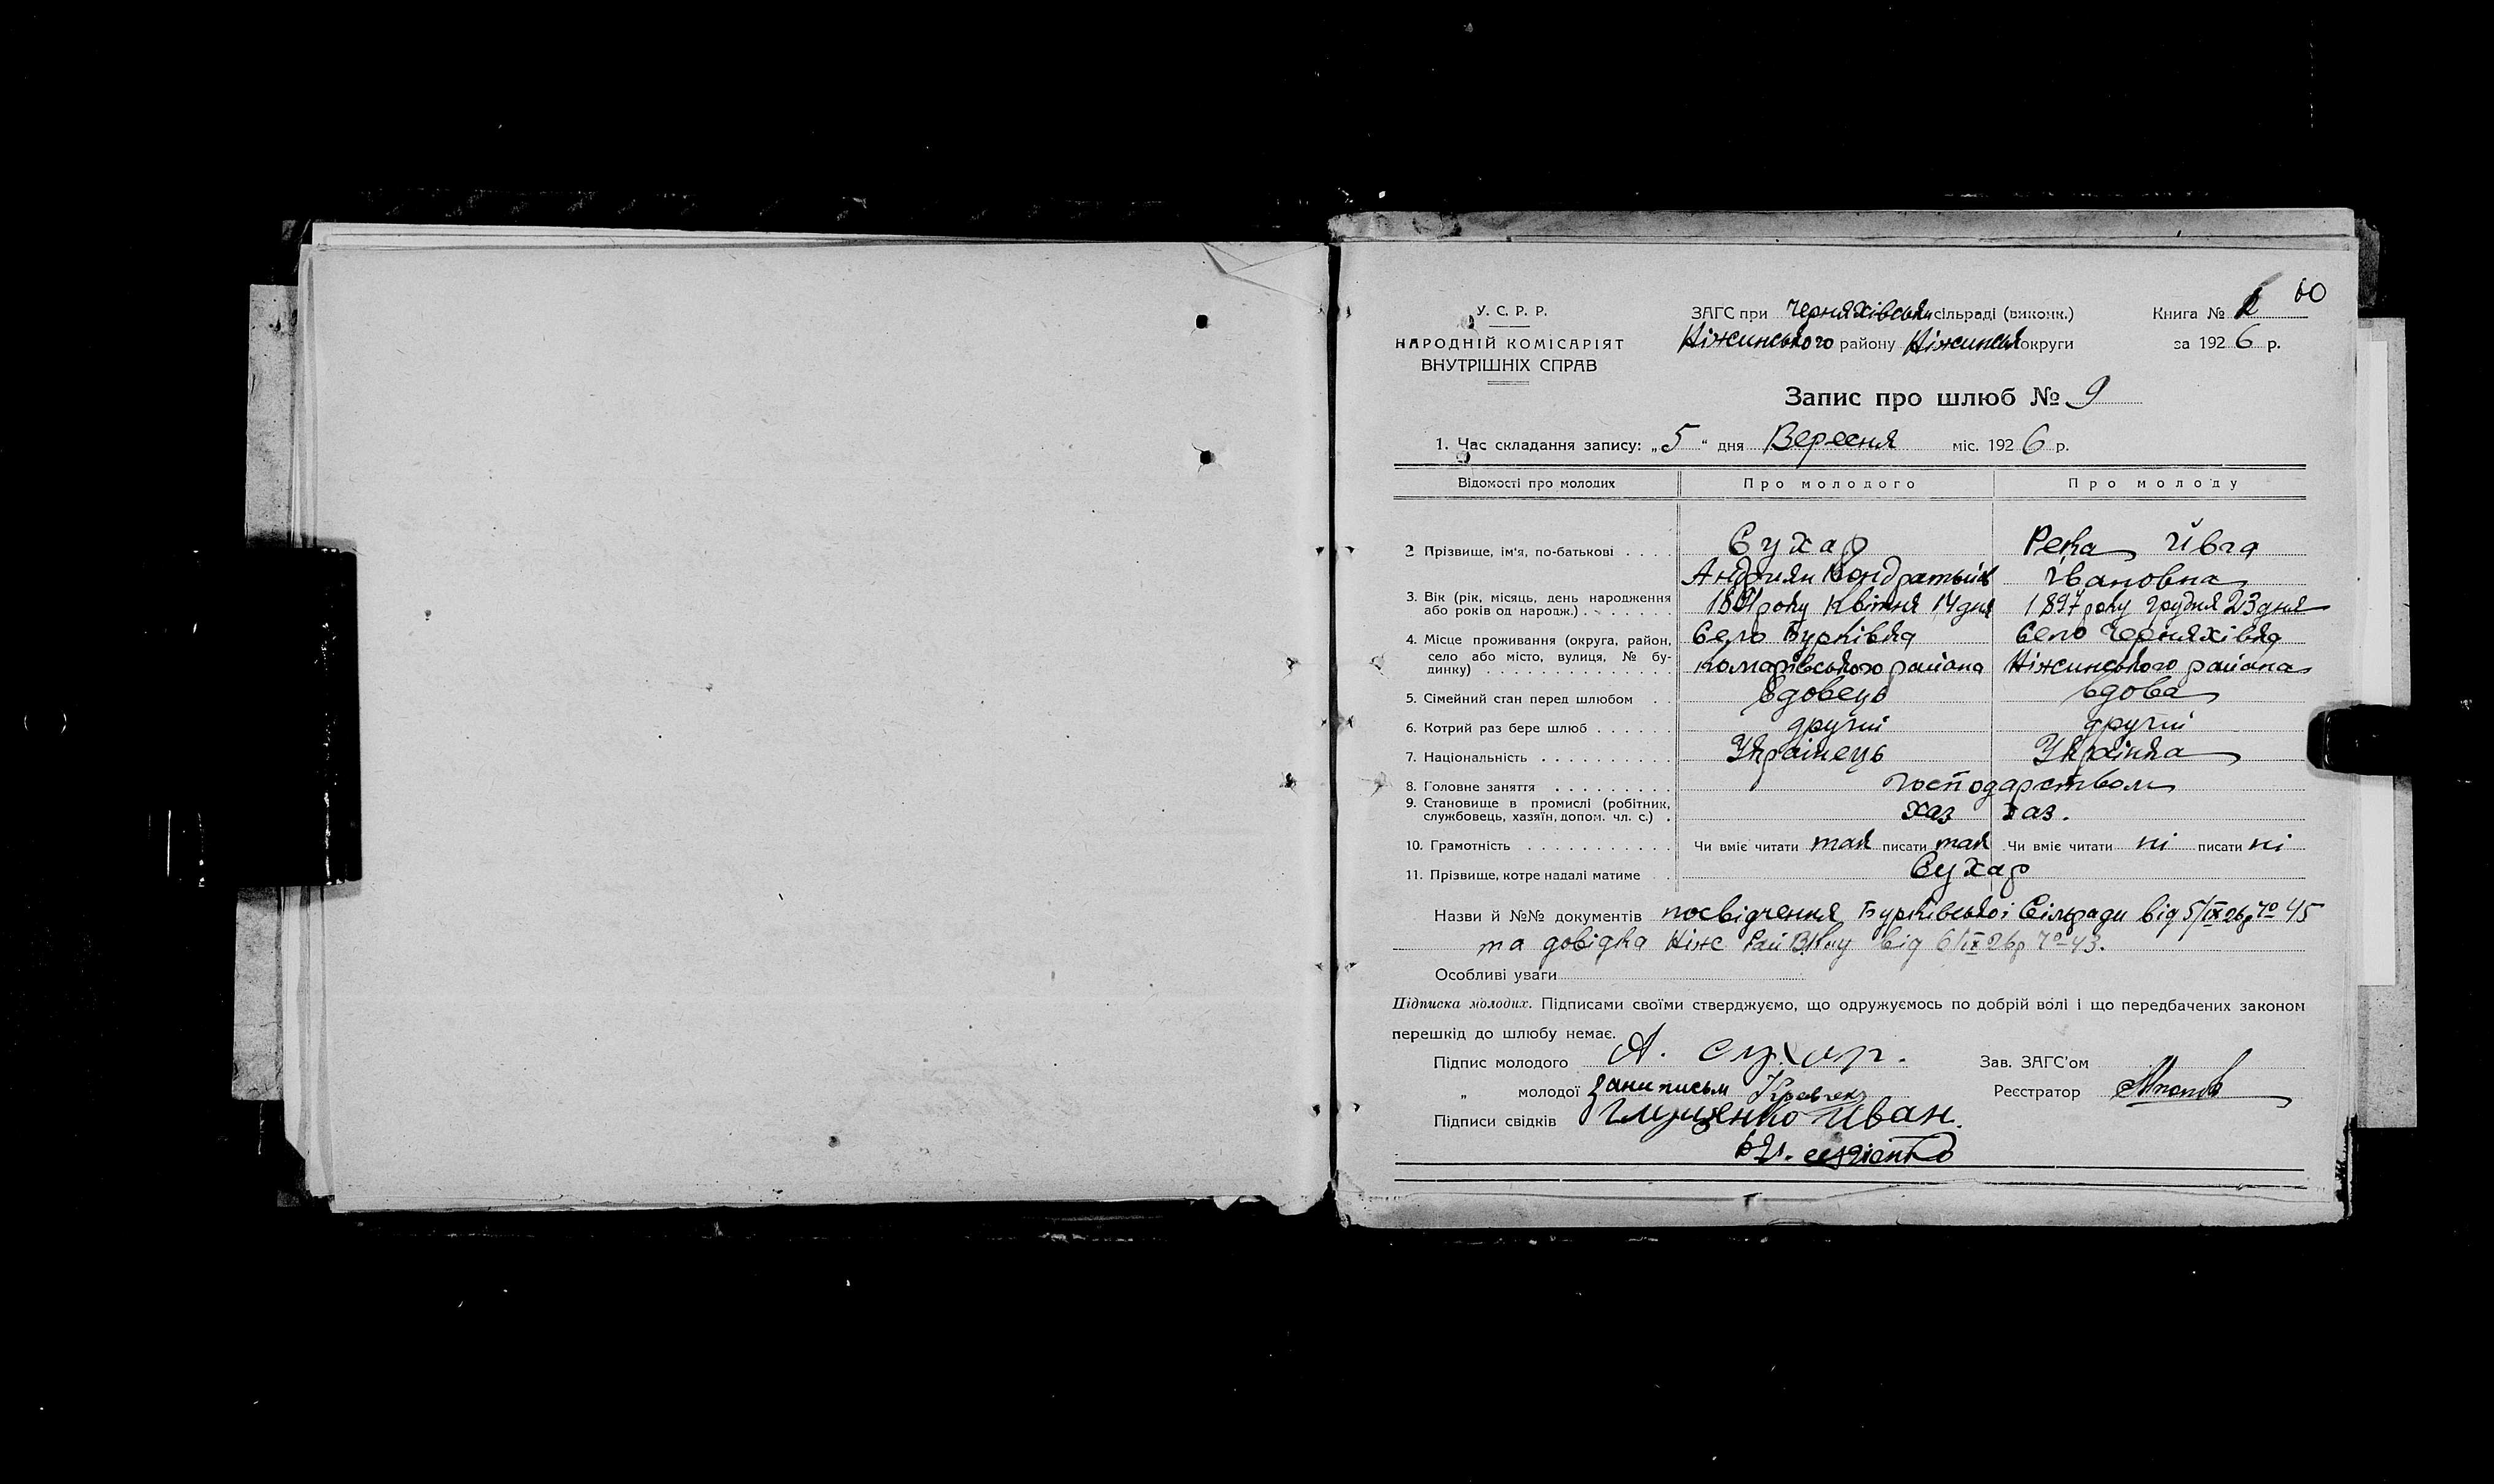 60
У. С. Р. Р.
НАРОДНІЙ КОМІСАРІЯТ
ВНУТРІШНІХ СПРАВ
ЗАГС при Черняхівськ сільраді (виконк.)
Ніжинського району Ніжинськ округи
Книга №
за 1926 р.
Запис про шлюб № 9
1. Час складання запису: „5“ дня Вересня міс. 1926 р.
Відомості про молодих Про молодого Про молоду
2 Прізвище, ім'я, по-батькові . . . . Сухар Река Ивга
Андриян Кондратьив Івановна
3. Вік (рік, місяць, день народження
або років од народж.) . . . . . . . 1891 року Квітня 14 дня 1897 року грудня 23 дня
4. Місце проживання (округа, район, Село Бурківка Село Черняхівка
село або місто, вулиця, № бу-
динку) . . . . . . . . . . . . . . Комарівського района Ніжинського района
5. Сімейний стан перед шлюбом . . вдовець вдова
6. Котрий раз бере шлюб . . . . . . другий другий
7. Національність . . . . . . . . . . Українець Українка
8. Головне заняття . . . . . . . . . господарством
9. Становище в промислі (робітник,
службовець, хазяїн, допом. чл. с.) . хаз хаз.
10. Грамотність . . . . . . . . . . . Чи вміє читати так писати так Чи вміє читати ні писати ні
11. Прізвище, котре надалі матиме . Сухар
Назви й №№ документів посвідчення Бурківської Сільради від 5/ІХ 26р № 45
та довідка Ніж Рай ВКму від 6/ІХ 26р № 43.
Особливі уваги
Підписка молодих. Підписами своїми стверджуємо, що одружуємось по добрій волі і що передбачених законом
перешкід до шлюбу немає.
Підпис молодого А. Сухар. Зав. ЗАГС'ом
„ молодої Реєстратор
Підписи свідків Глущенко Иван.